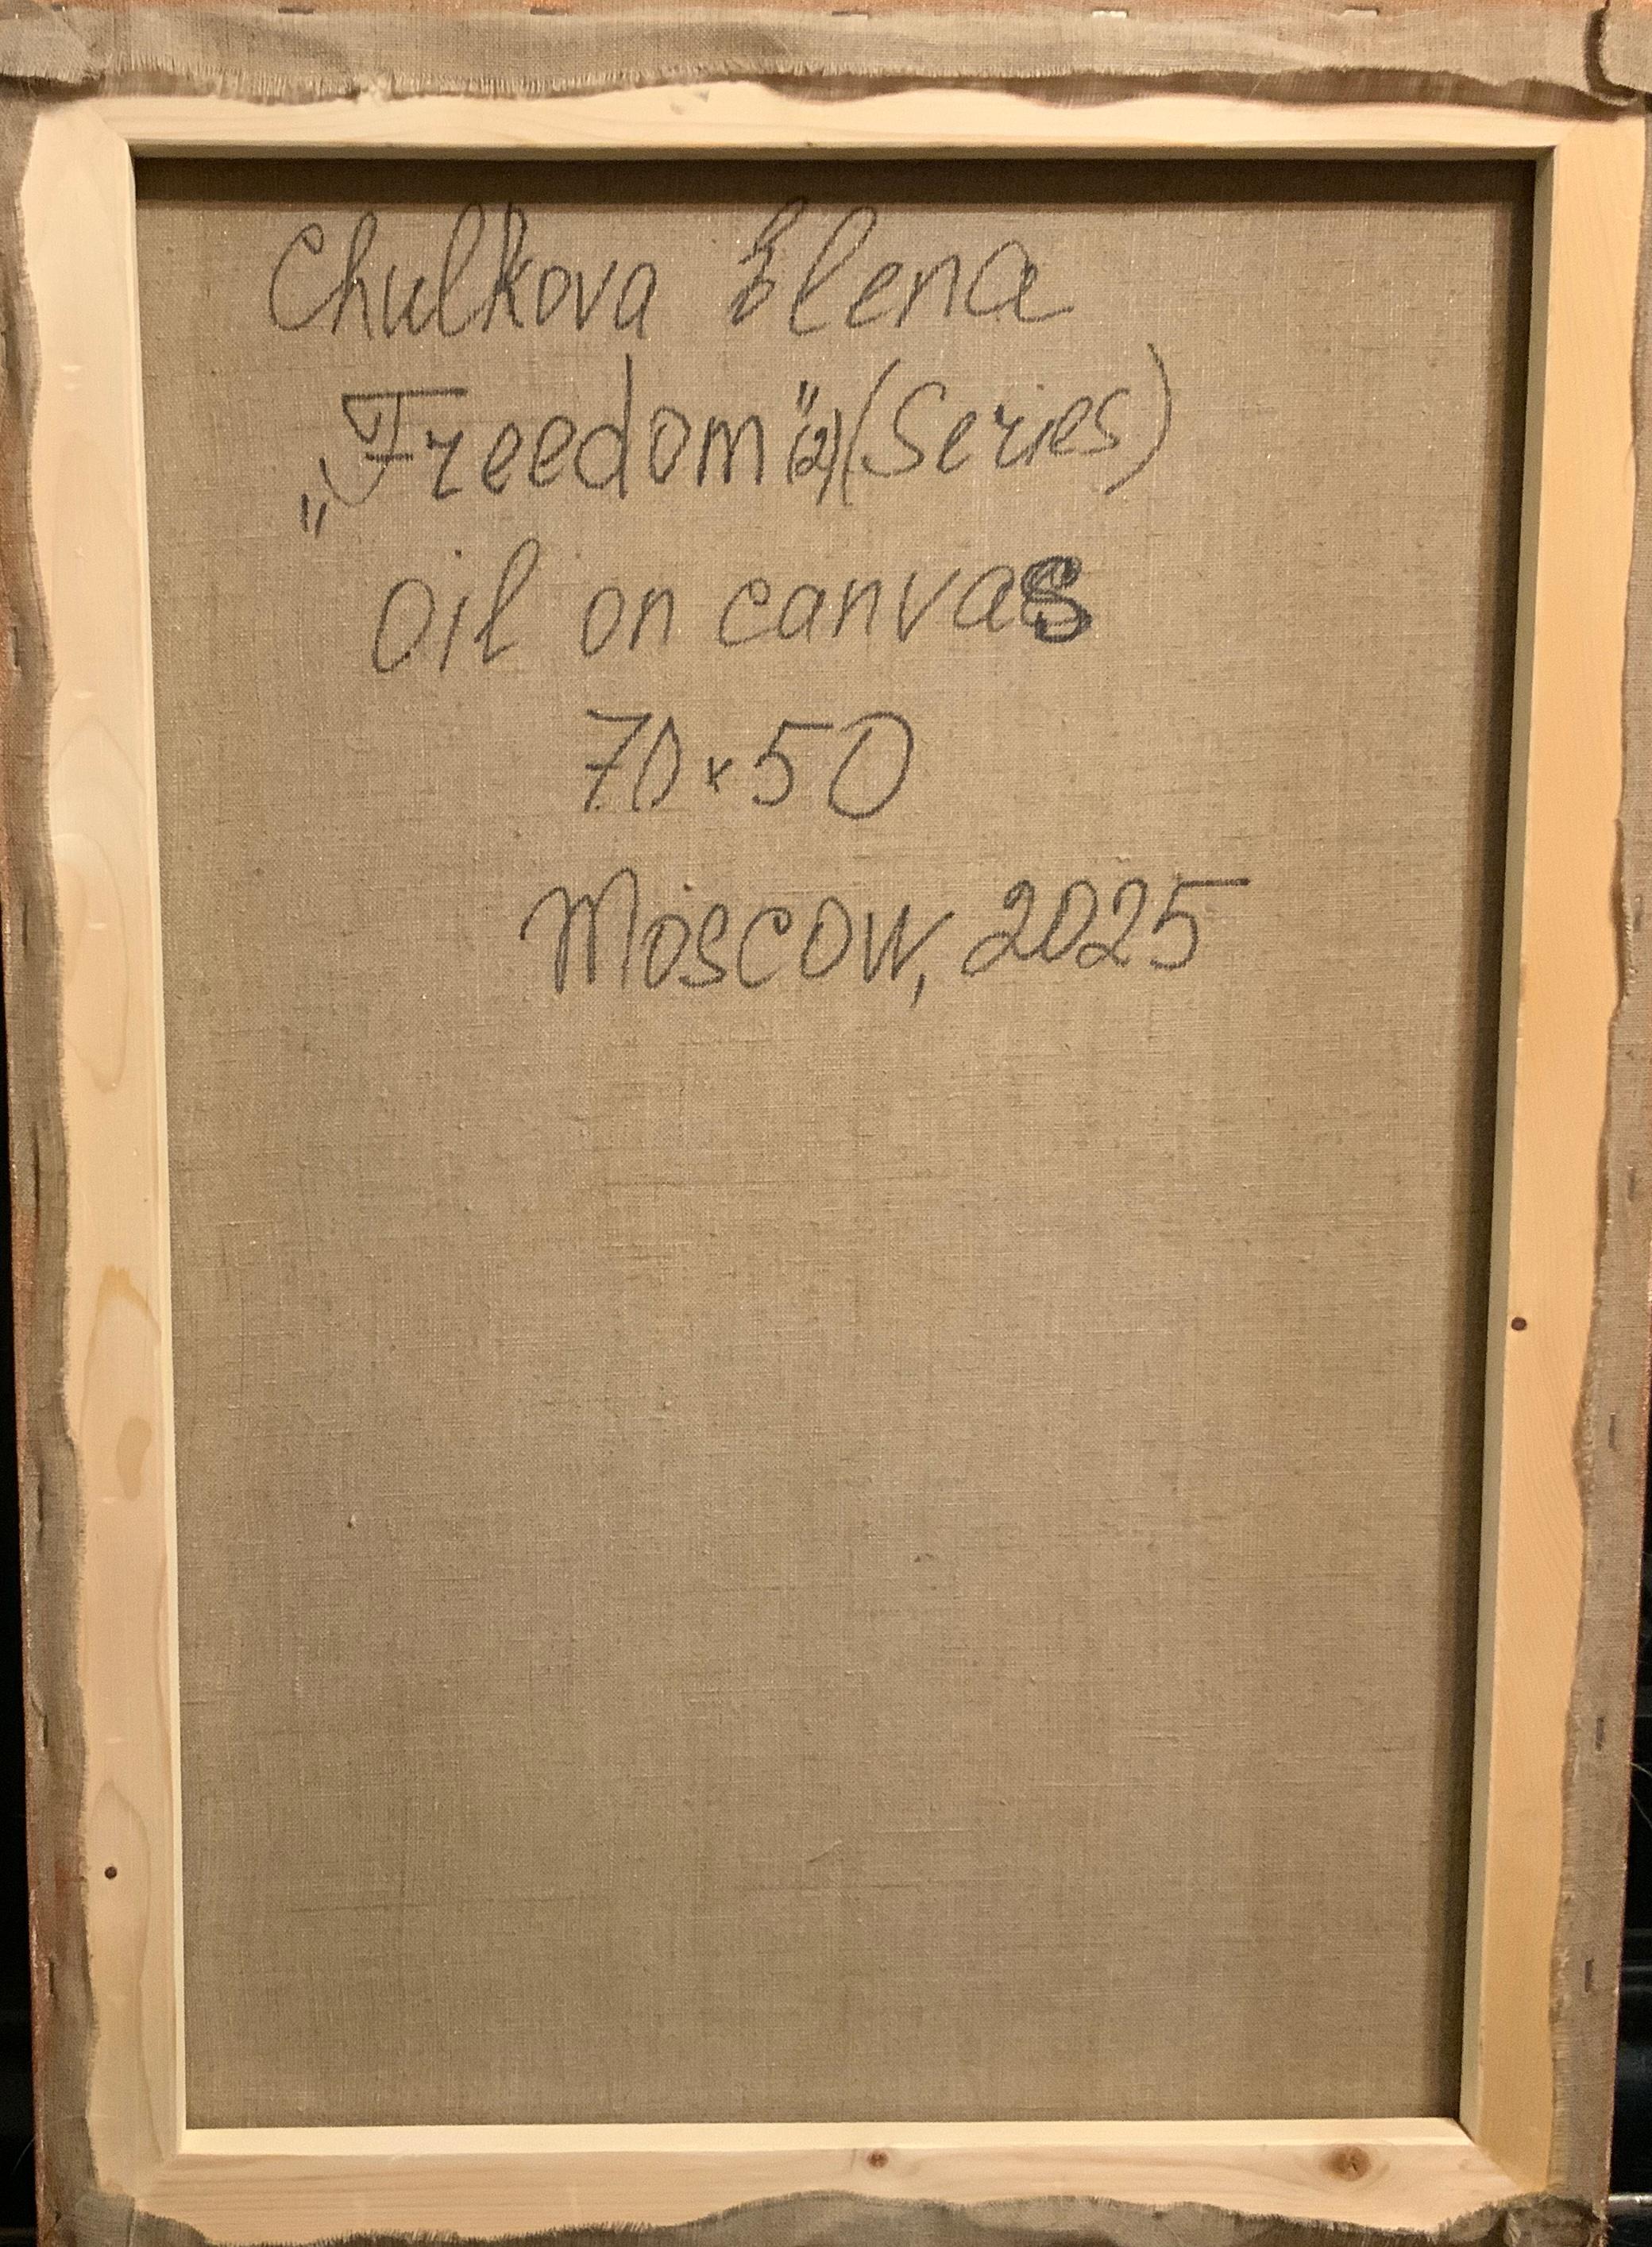 Chulkova Elena
„Freedom" (2) (Series)
Oil on canvas
70x50
Moscow, 2025